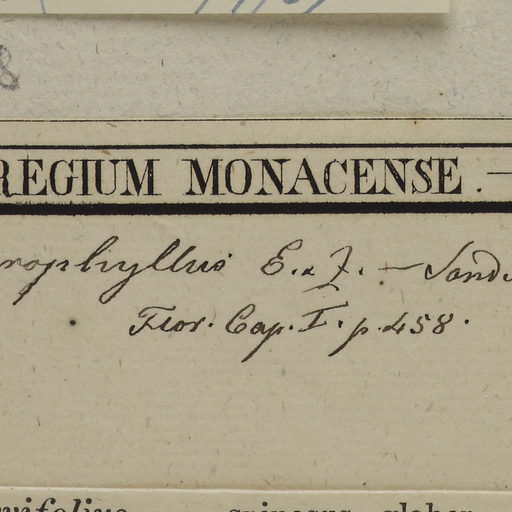 REGIUM MONACENSE. —
rophyllus E. & Z. — Sond.
Flor. Cap. I. p. 458.
spinosus glaber